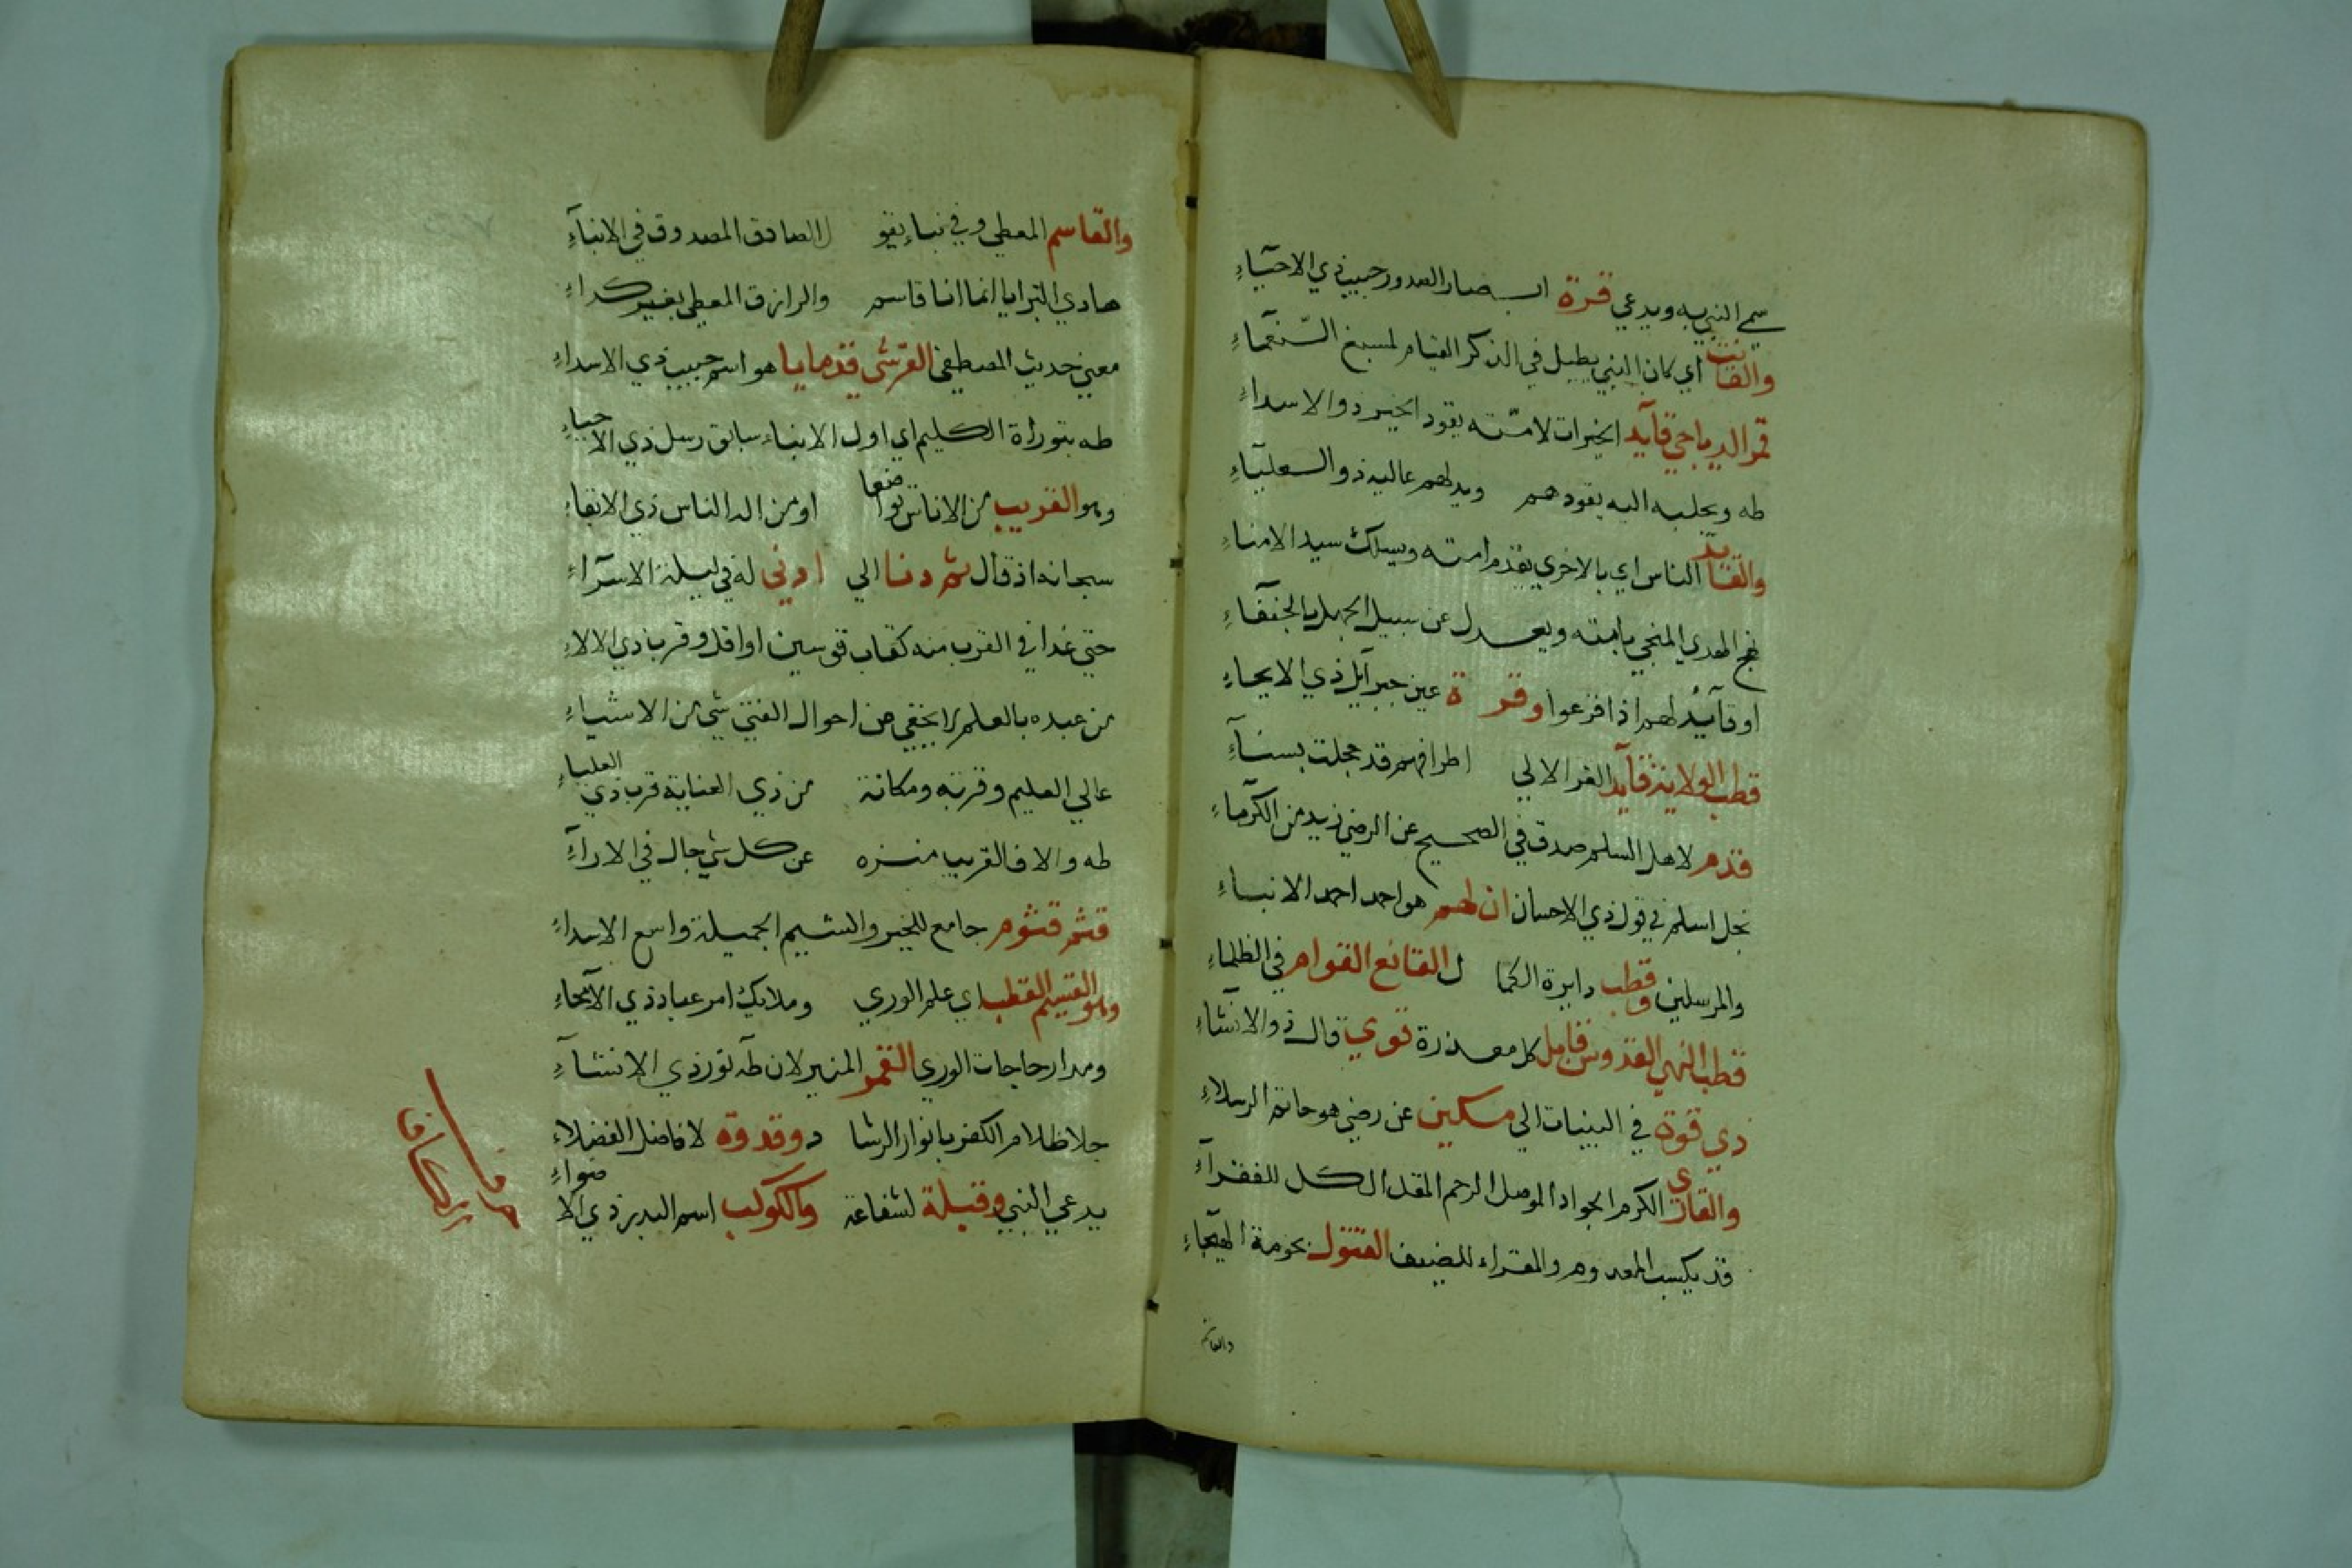 سمي النبي به ويدعي قرة ابصار الصدور حبيب ذي الاحتباء
والقانت اي كان النبي يطيل في الذكر القيام لمسبغ النعماء
قمر الدياجي قآيد الخيرات لامته يقود الخير ذو الاسداء
طه ويجلبه اليه يقودهم ويدلهم عاليه ذو العلياء
والقائد الناس اي بالاخري يقدم امته ويسلك سيد الامناء
نهج الهدي المنجي بامته ويعدل عن سبيل الجهل بالحنفاء
او قآيد لهم اذا فزعوا وقرة عين جبرآيل ذي الايحاء
قطب الولاية قآيد الغر الالي اطرافهم قد حجلت بسناء
قدم لاهل السلم صدق في الصحيح عن الرضي زيد من الكرماء
نجل اسلم في قول ذي الاحسان ان لهم هو احمد احمد الانباء
والمرسلين وقطب دايرة الكما ل القانع القوام في الظلماء
قطب النهي القدوس قابل كل معذرة قوي قال ذو الانشاء
ذي قوة في البينات الي مسكين عن رضي هو خاتم الرسلاء
والقاري الكرم الجواد الموصل الرحم المقل الكل للفقرآء
قد يكسب المعدوم والمقراء للضيف القتول بحومة الهيجاء
والقاسم
والقاسم المعطي وفي نباء يقو ل الصادق المصدوق في الانباء
هادي البرايا انما انا قاسم والرازق المعطي بغير كداء
معني حديث المصطفي القرشي قدمايا هو اسم حبيب ذي الاسداء
طه بتوراة الكليم اي اول الانباء سابق رسل ذي الاحباء
وهو القريب من الاناس تواضعا او من اله الناس ذي الابقاء
سبحانه اذ قال ثم دنا الي ادني له في ليلة الاسرآء
حتي غدا في القرب منه كقاب قوسين او اقل وقرب ذي الالاء
من عبده بالعلم لا يخفي من احوال الفتي شي من الاشياء
عالي العليم وقربه ومكانة من ذي العناية قرب ذي العلياء
طه والا فالقريب منزه عن كل شي جال في الارآء
قثم قثوم جامع للخير والشيم الجميلة واسع الاسداء
وهو القسيم القطب اي علم الوري وملايك امر عباد ذي الآيحاء
ومدار حاجات الوري القمر المنير لان طه نور ذي الانشاء
جلا ظلام الكفر بانوار الرشا د وقدوة لافاضل الفضلاء
يدعي النبي وقبلة لشفاعة والكوكب اسم البدر ذي الاضواء
حرف الكاف